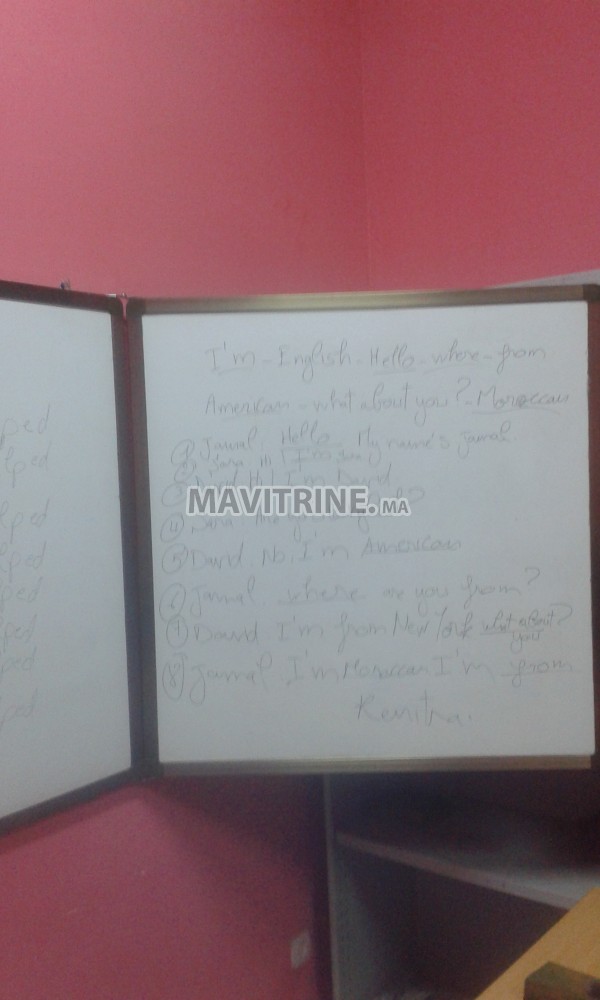 I'm - English - Hello - where - from
American - what about you? - Moroccan
① Jamal. Hello. My name's Jamal.
② Sara. Hi I'm Sara
③ Hi I'm David
MAVITRINE.MA
④ Sara
⑤ David. No, I'm American
⑥ Jamal. where are you from?
⑦ David I'm from New York what about you?
⑧ Jamal. I'm Moroccan I'm from
Kenitra.
ped
ped
ped
ped
ped
ped
ped
ped